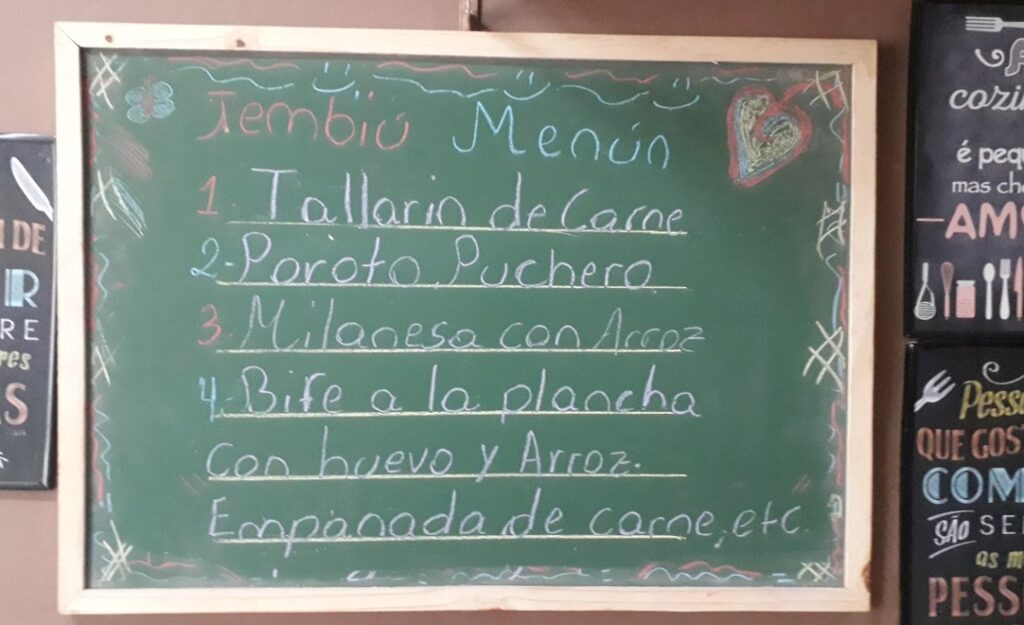 Tembiú Menún
1 Tallarin de Carne
2. Poroto Puchero
3. Milanesa con Arroz
4. Bife a la plancha
con huevo y Arroz.
Empanada de carne, etc
DE
cozin
é pequ
mas che
AM
Pesso
QUE GOS
COM
SÃO SE
as m
PESS